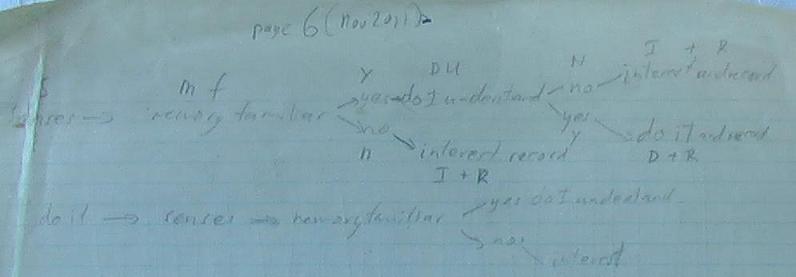 page 6 (nov 2011)
I + R
Y DU N
m f interest and record
S yes → do I understand no
senses → memory familiar yes
no Y do it and record
n interest record D + R
I + R
do it → senses → memory familiar yes do I understand
no
interest